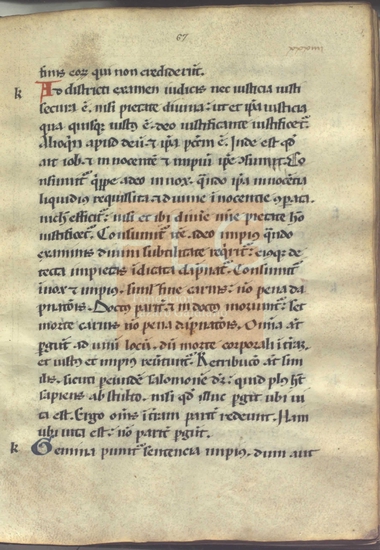 67
finis eoꝝ qui non crediderūt.
k Ad districti examen iudicis nec iusticia iusti
secura ē. nisi pietate diuina: ut et ip̄a iusticia
qua quisqꝫ iustꝰ ē. deo iustificante iustificet᷑.
Alioqn̄ apud deū: & ip̄a pctm̄ ē. Inde est qd̓
ait iob. & innocentē & impiū ip̄e ↄsumit. Cō
sumit᷑ q̄ppe a deo innox. qn̄do ip̄a innocētia
liquidiꝰ requisita & diuine innocentie ↄparata
nichil efficit᷑: nisi et ibi
iustificet᷑. Consumit᷑ a deo impiꝰ qn̄do
examinis diuini subtilitate req̄rit᷑: eiusqꝫ de
tecta impietas iudicata dāpnat᷑. Consumit᷑
innox & impiꝰ. simł fine carnis: nō pena dā
pnatōnis. Doctꝰ parit᷑ & indoctꝰ moriunt᷑: sed
morte carnis nō pena dāpnatōnis. Omīa
pergūt ad unū locū. dū morte corporali ī t̄rā.
et iustꝰ et impiꝰ reuertunt᷑. Retributō aūt
sicuti
sapiens ab stulto. nisi qd̓ illuc pergit ubi ui
ta est. Ergo om̄s ī t̄ram parit᷑ redeunt. Nam
ubi uita est: nō parit᷑ pergūt.
k Gemina punit᷑ sentencia impiꝰ. dum aut